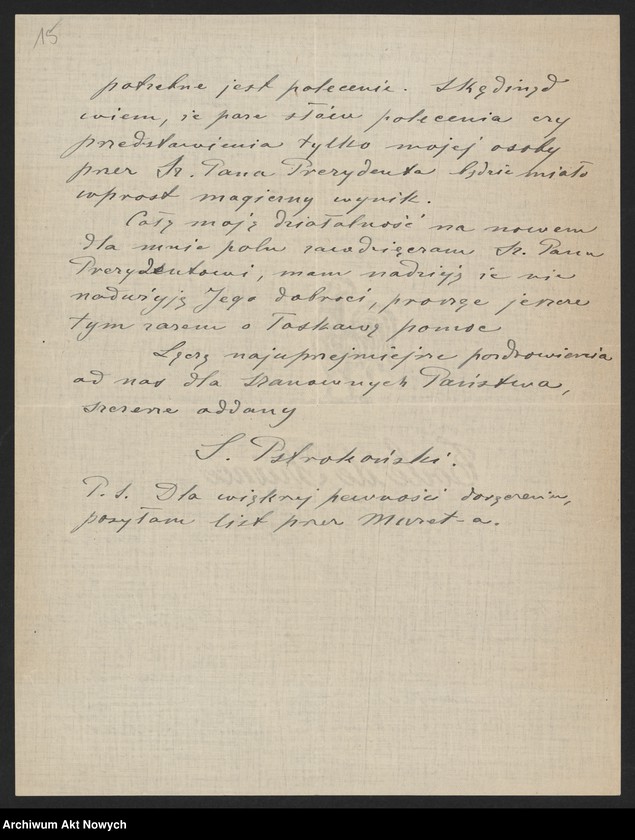 15
potrzebne jest polecenie. Skądinąd
wiem, że parę słów polecenia czy
przedstawienia tylko mojej osoby
przez Sz. Pana Prezydenta będzie miało
wprost magiczny wynik.
Całą moją działalność na nowem
dla mnie polu zawdzięczam Sz. Panu
Prezydentowi, mam nadzieję że nie
nadużyję Jego dobroci, prosząc jeszcze
tym razem o łaskawą pomoc
Łączę najuprzejmiejsze pozdrowienia
od nas dla Szanownych Państwa,
szczerze oddany
S. Pstrokoński.
P.S. Dla większej pewności doręczenia,
posyłam list przez Muzet-a.
Archiwum Akt Nowych